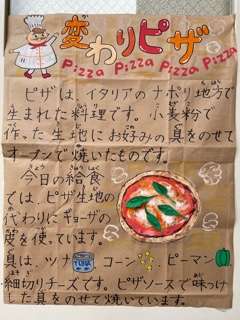 変わりピザ
Pizza Pizza Pizza Pizza
ピザは、イタリアのナポリ地方で
生まれた料理です。小麦粉で
作った生地にお好みの具をのせて
オーブンで焼いたものです。
今日の給食
では、ピザ生地の
代わりにギョーザの
皮を使っています。
具は、ツナ TUNA コーン ピーマン
細切りチーズです。ピザソースで味つけ
した具をのせて焼いています。